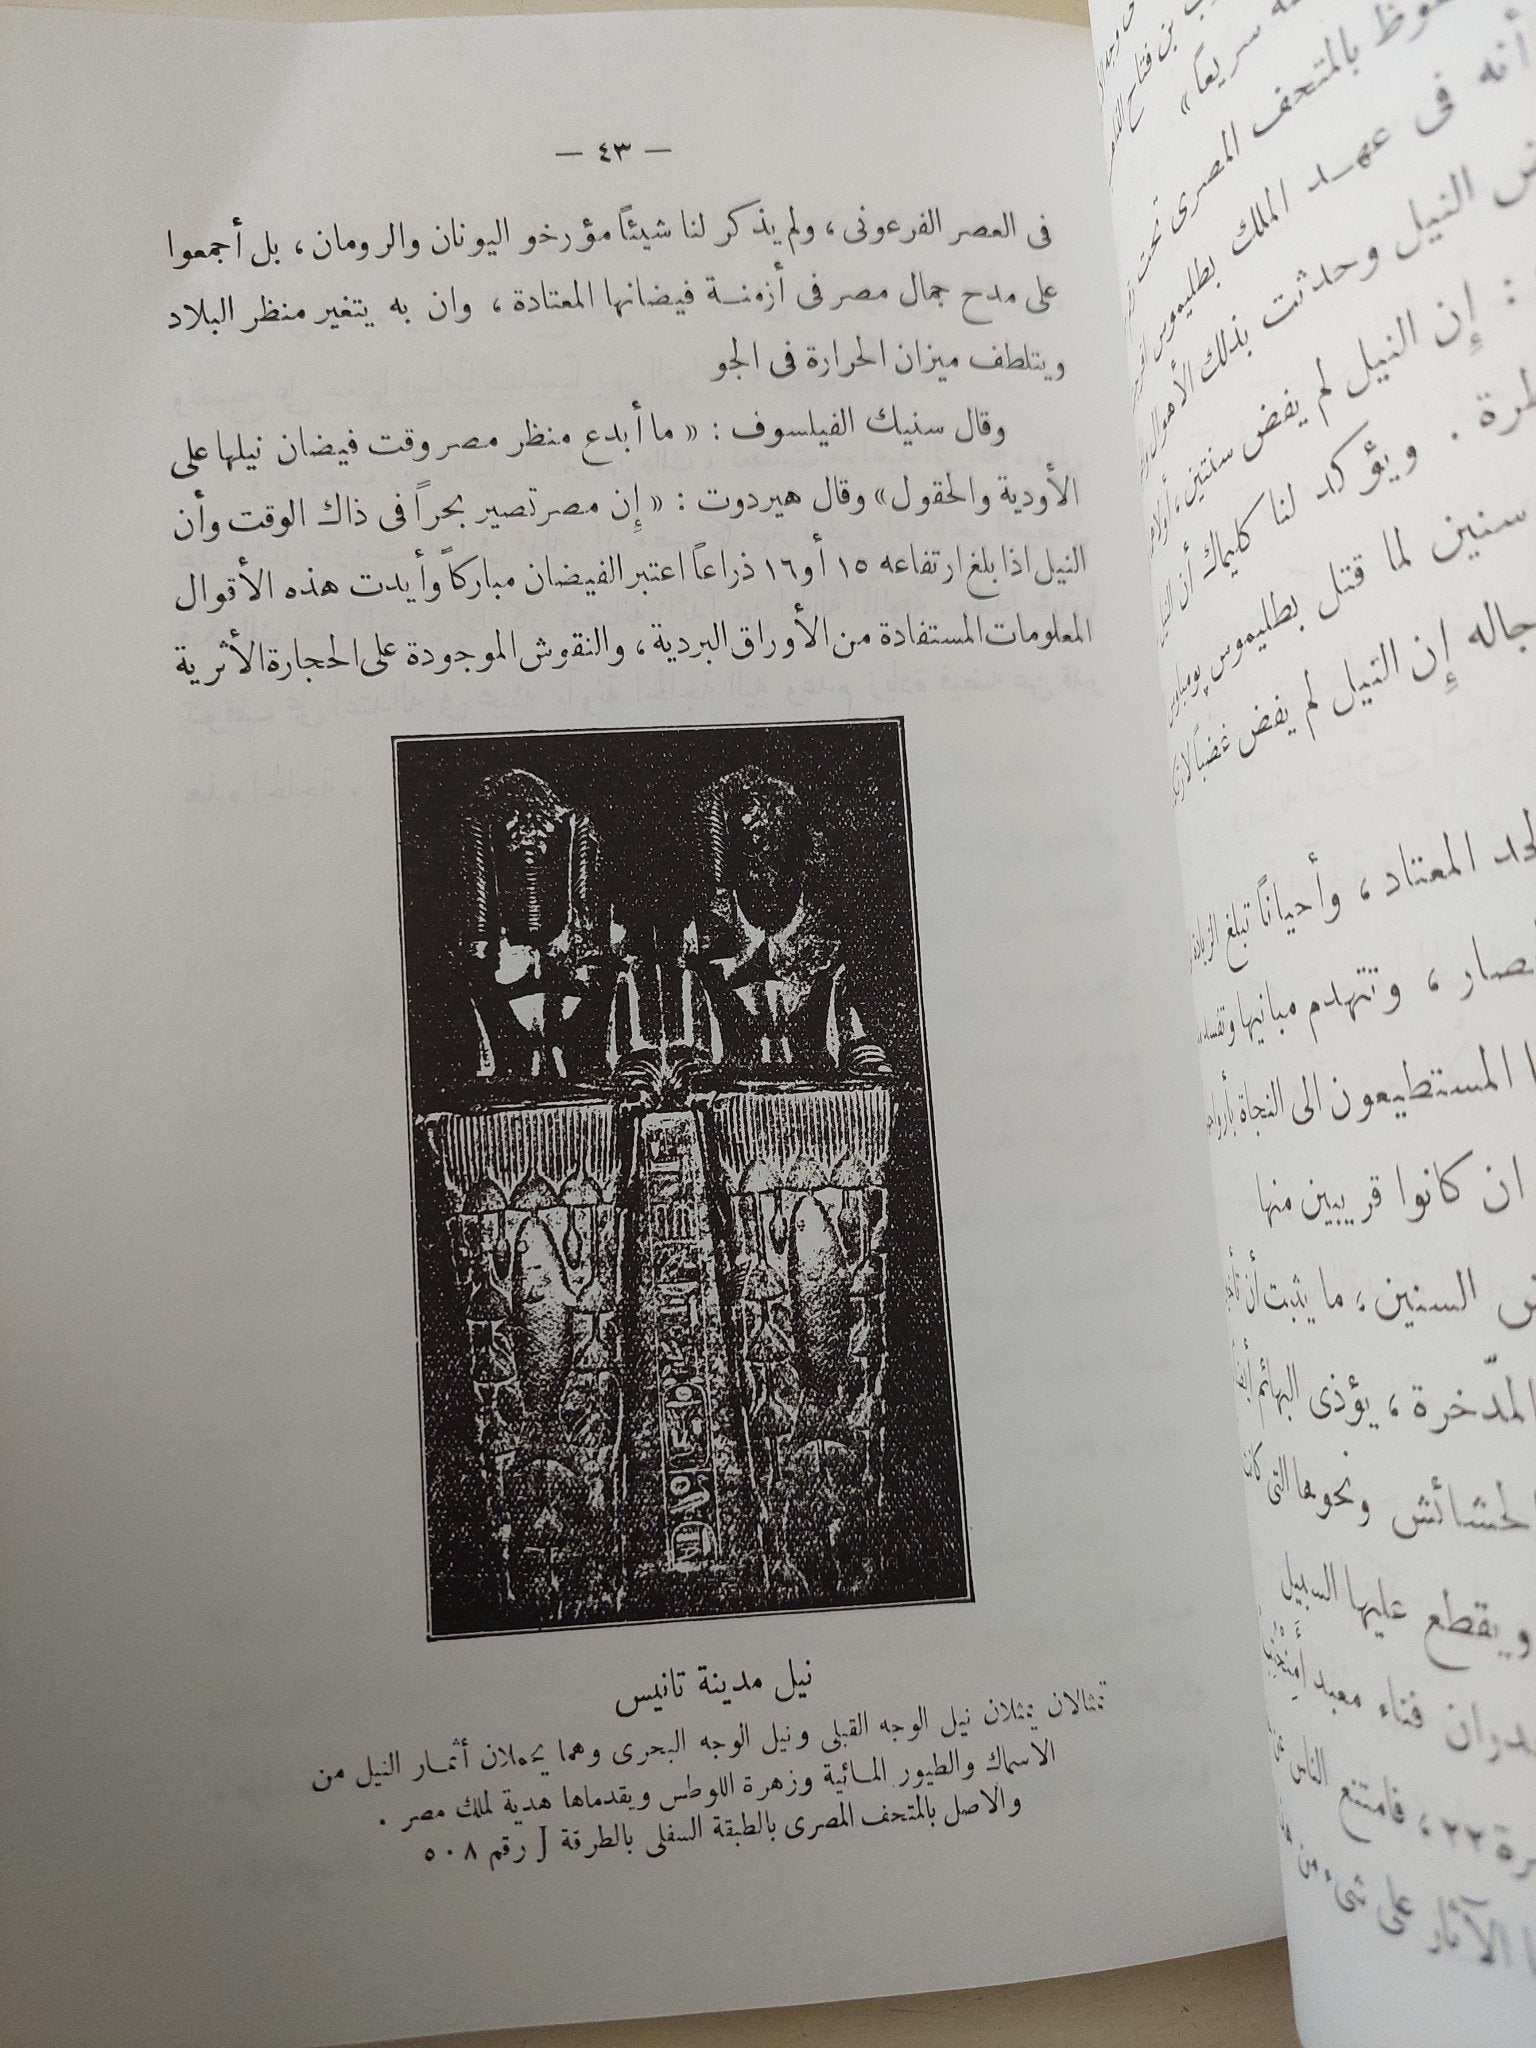 — ٤٣ —
فى العصر الفرعونى ، ولم يذكر لنا شيئاً مؤرخو اليونان والرومان ، بل أجمعوا
على مدح جمال مصر فى أزمنة فيضانها المعتادة ، وان به يتغير منظر البلاد
ويتلطف ميزان الحرارة فى الجو
وقال سنيك الفيلسوف : « ما أبدع منظر مصر وقت فيضان نيلها على
الأودية والحقول » وقال هيردوت : « إن مصر تصير بحراً فى ذاك الوقت وأن
النيل اذا بلغ ارتفاعه ١٥ أو ١٦ ذراعاً اعتبر الفيضان مباركاً وأيدت هذه الأقوال
المعلومات المستفادة من الأوراق البردية ، والنقوش الموجودة على الحجارة الأثرية
نيل مدينة تانيس
تمثالان يمثلان نيل الوجه القبلى ونيل الوجه البحرى وهما يحملان أثمار النيل من
الاسماك والطيور المائية وزهرة اللوطس ويقدماها هدية لملك مصر .
والاصل بالمتحف المصرى بالطبقة السفلى بالطرقة J رقم ٥٠٨
سريعاً »
بالمتحف المصرى تحت
أنه فى عهد الملك بطليموس
النيل وحدثت بذلك الأهوال
: إن النيل لم يفض سنتين ، أولا
. ويؤكد لنا كليماك أن النيل
سنين لما قتل بطليموس
إن النيل لم يفض غضباً
المعتاد ، وأحياناً تبلغ الزيادة
، وتتهدم مبانيها
المستطيعون الى النجاة
ان كانوا قريبين منها
السنين ، ما يثبت أن
المدّخرة ، يؤذى البهائم
ونحوها التى كانت
ويقطع عليها السبيل
فناء معبد
٢٢ ، فامتنع الناس
الآثار على شىء من